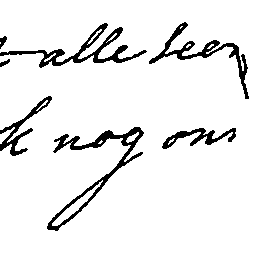 t alle seen
k nog ons